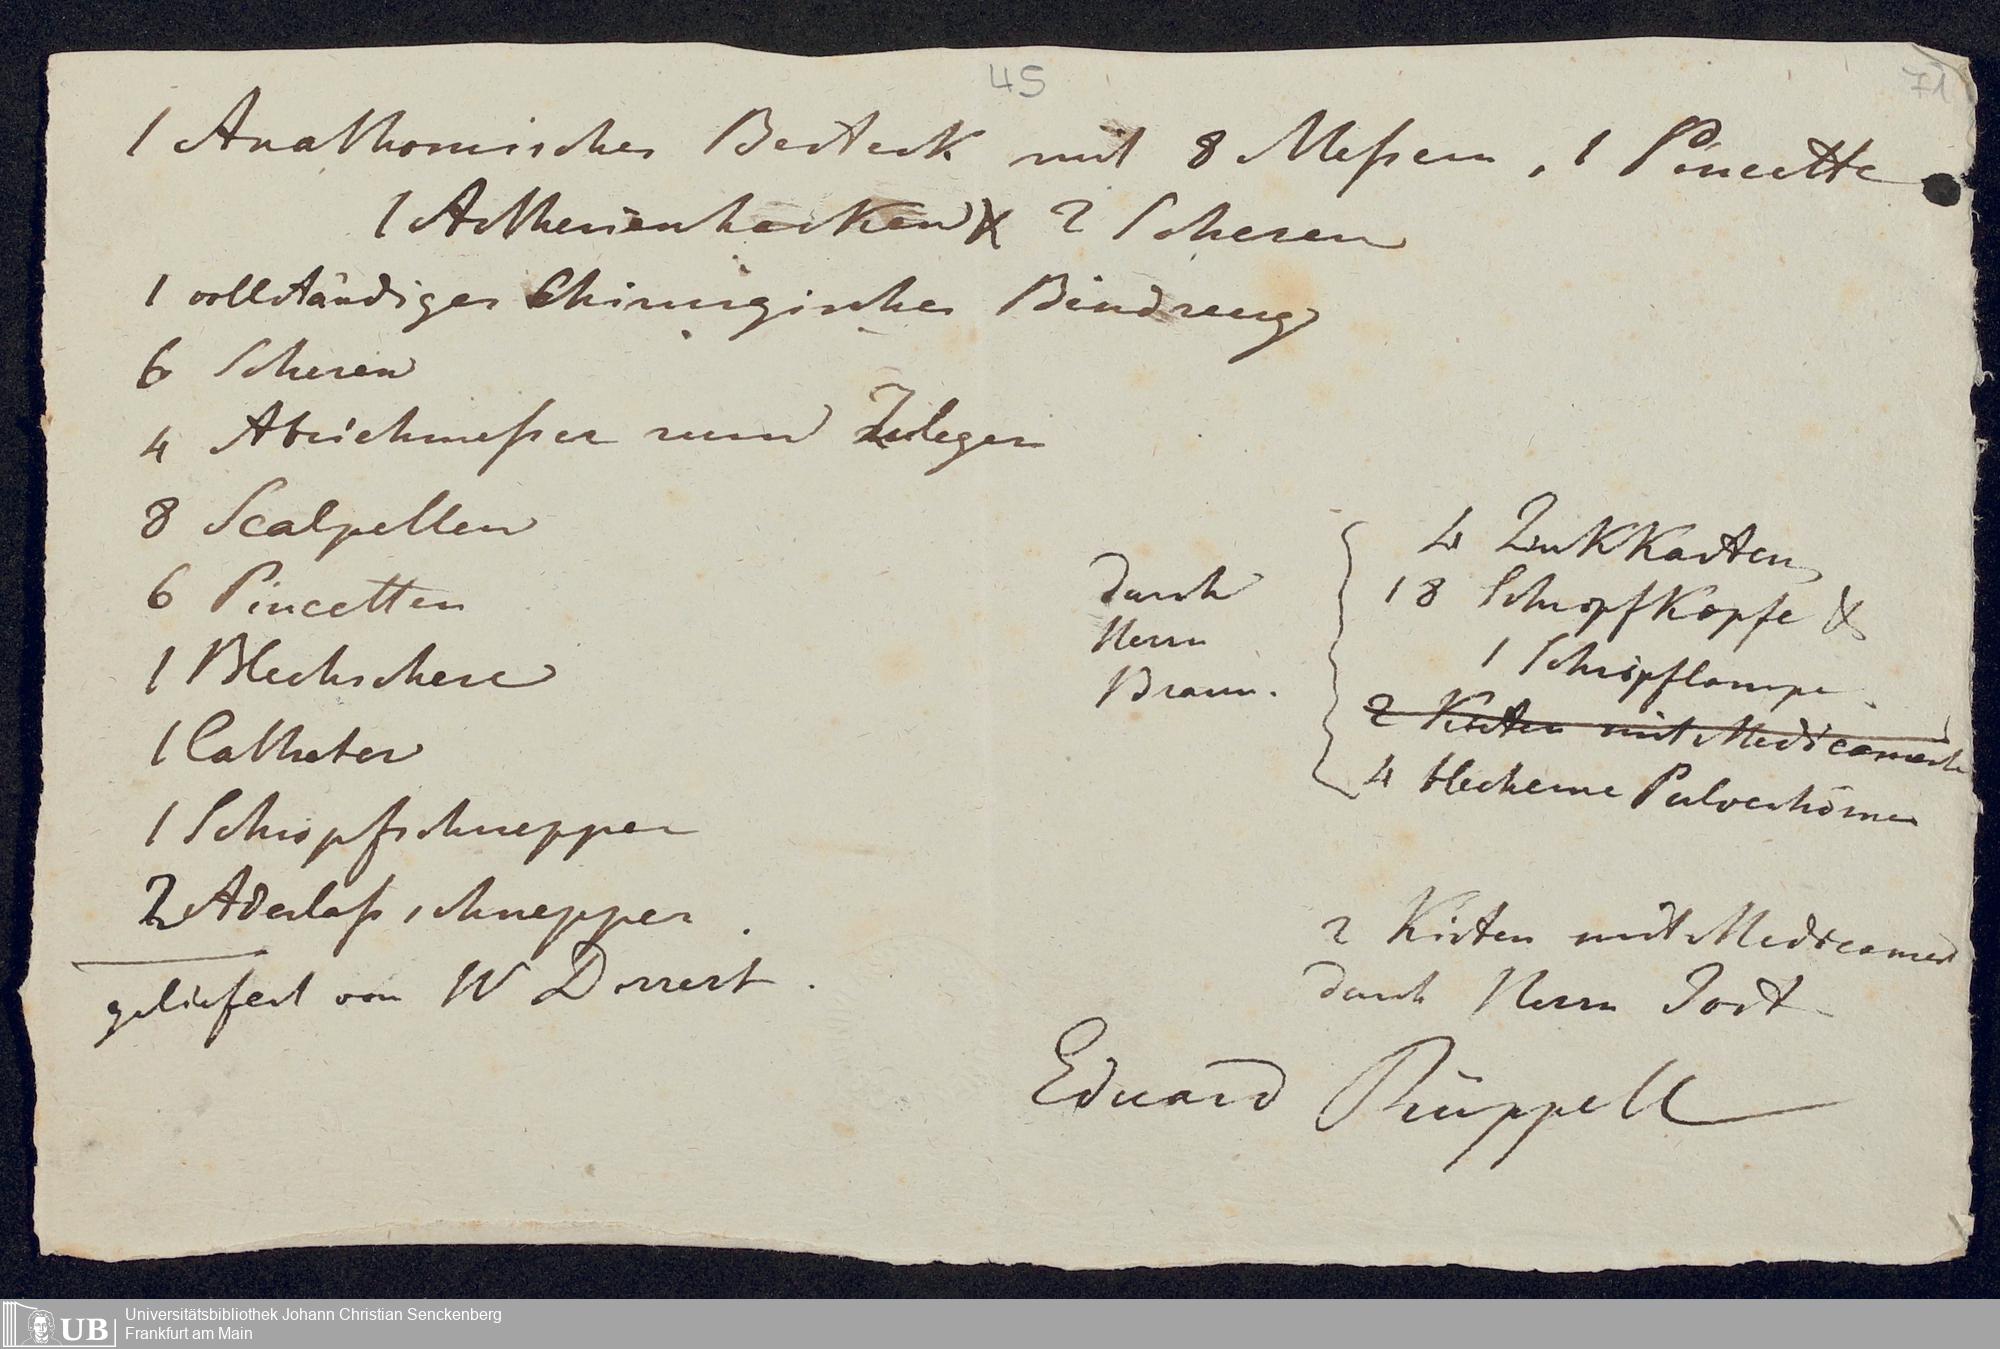 45
71
1 Anathomisches Besteck mit 8 Meßern, 1 Pincette
1 Artherienhacken & 2 Scheren
1 vollständiges Chirurgisches Bindzeug
6 Scheren
4 zum Zulegen
8 Scalpellen
6 Pincetten
1 Blechschere
1 Catheter
1 Schröpfschnepper
2 Aderlaßschnepper
geliefert von W
durch
Herrn
Braun.
4 Zinkkasten
18 Schröpfköpfe &
1 Schröpflampe
2 Kisten mit Medicament
4 blecherne Pulverhörner
2 Kisten mit Medicament
durch Herrn Jost
Eduard Rüppell
UB
Universitätsbibliothek Johann Christian Senckenberg
Frankfurt am Main